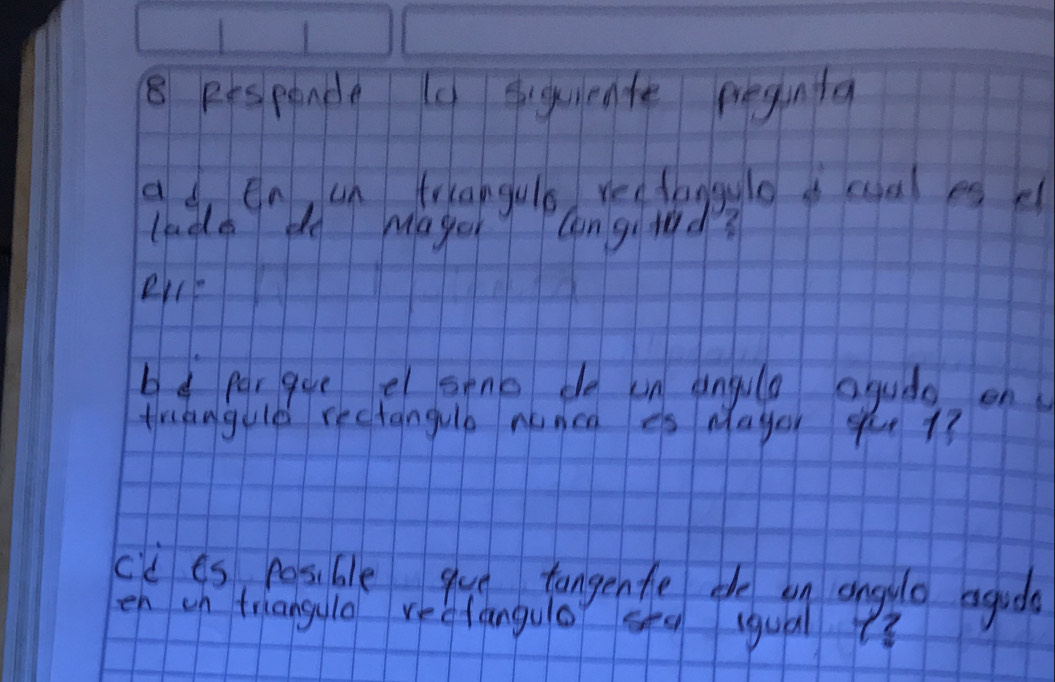 8 Responde la siguiente pregunta
a ¿ En un triangulo rectangulo ¿ cual es el
lado de mayor longitud?
R//=
b ¿ por que el seno de un angulo agudo en
triangulo rectangulo nunca es mayor que 1?
c ¿ es posible que tangente de un angulo agudo
en un triangulo rectangulo sea igual 1?